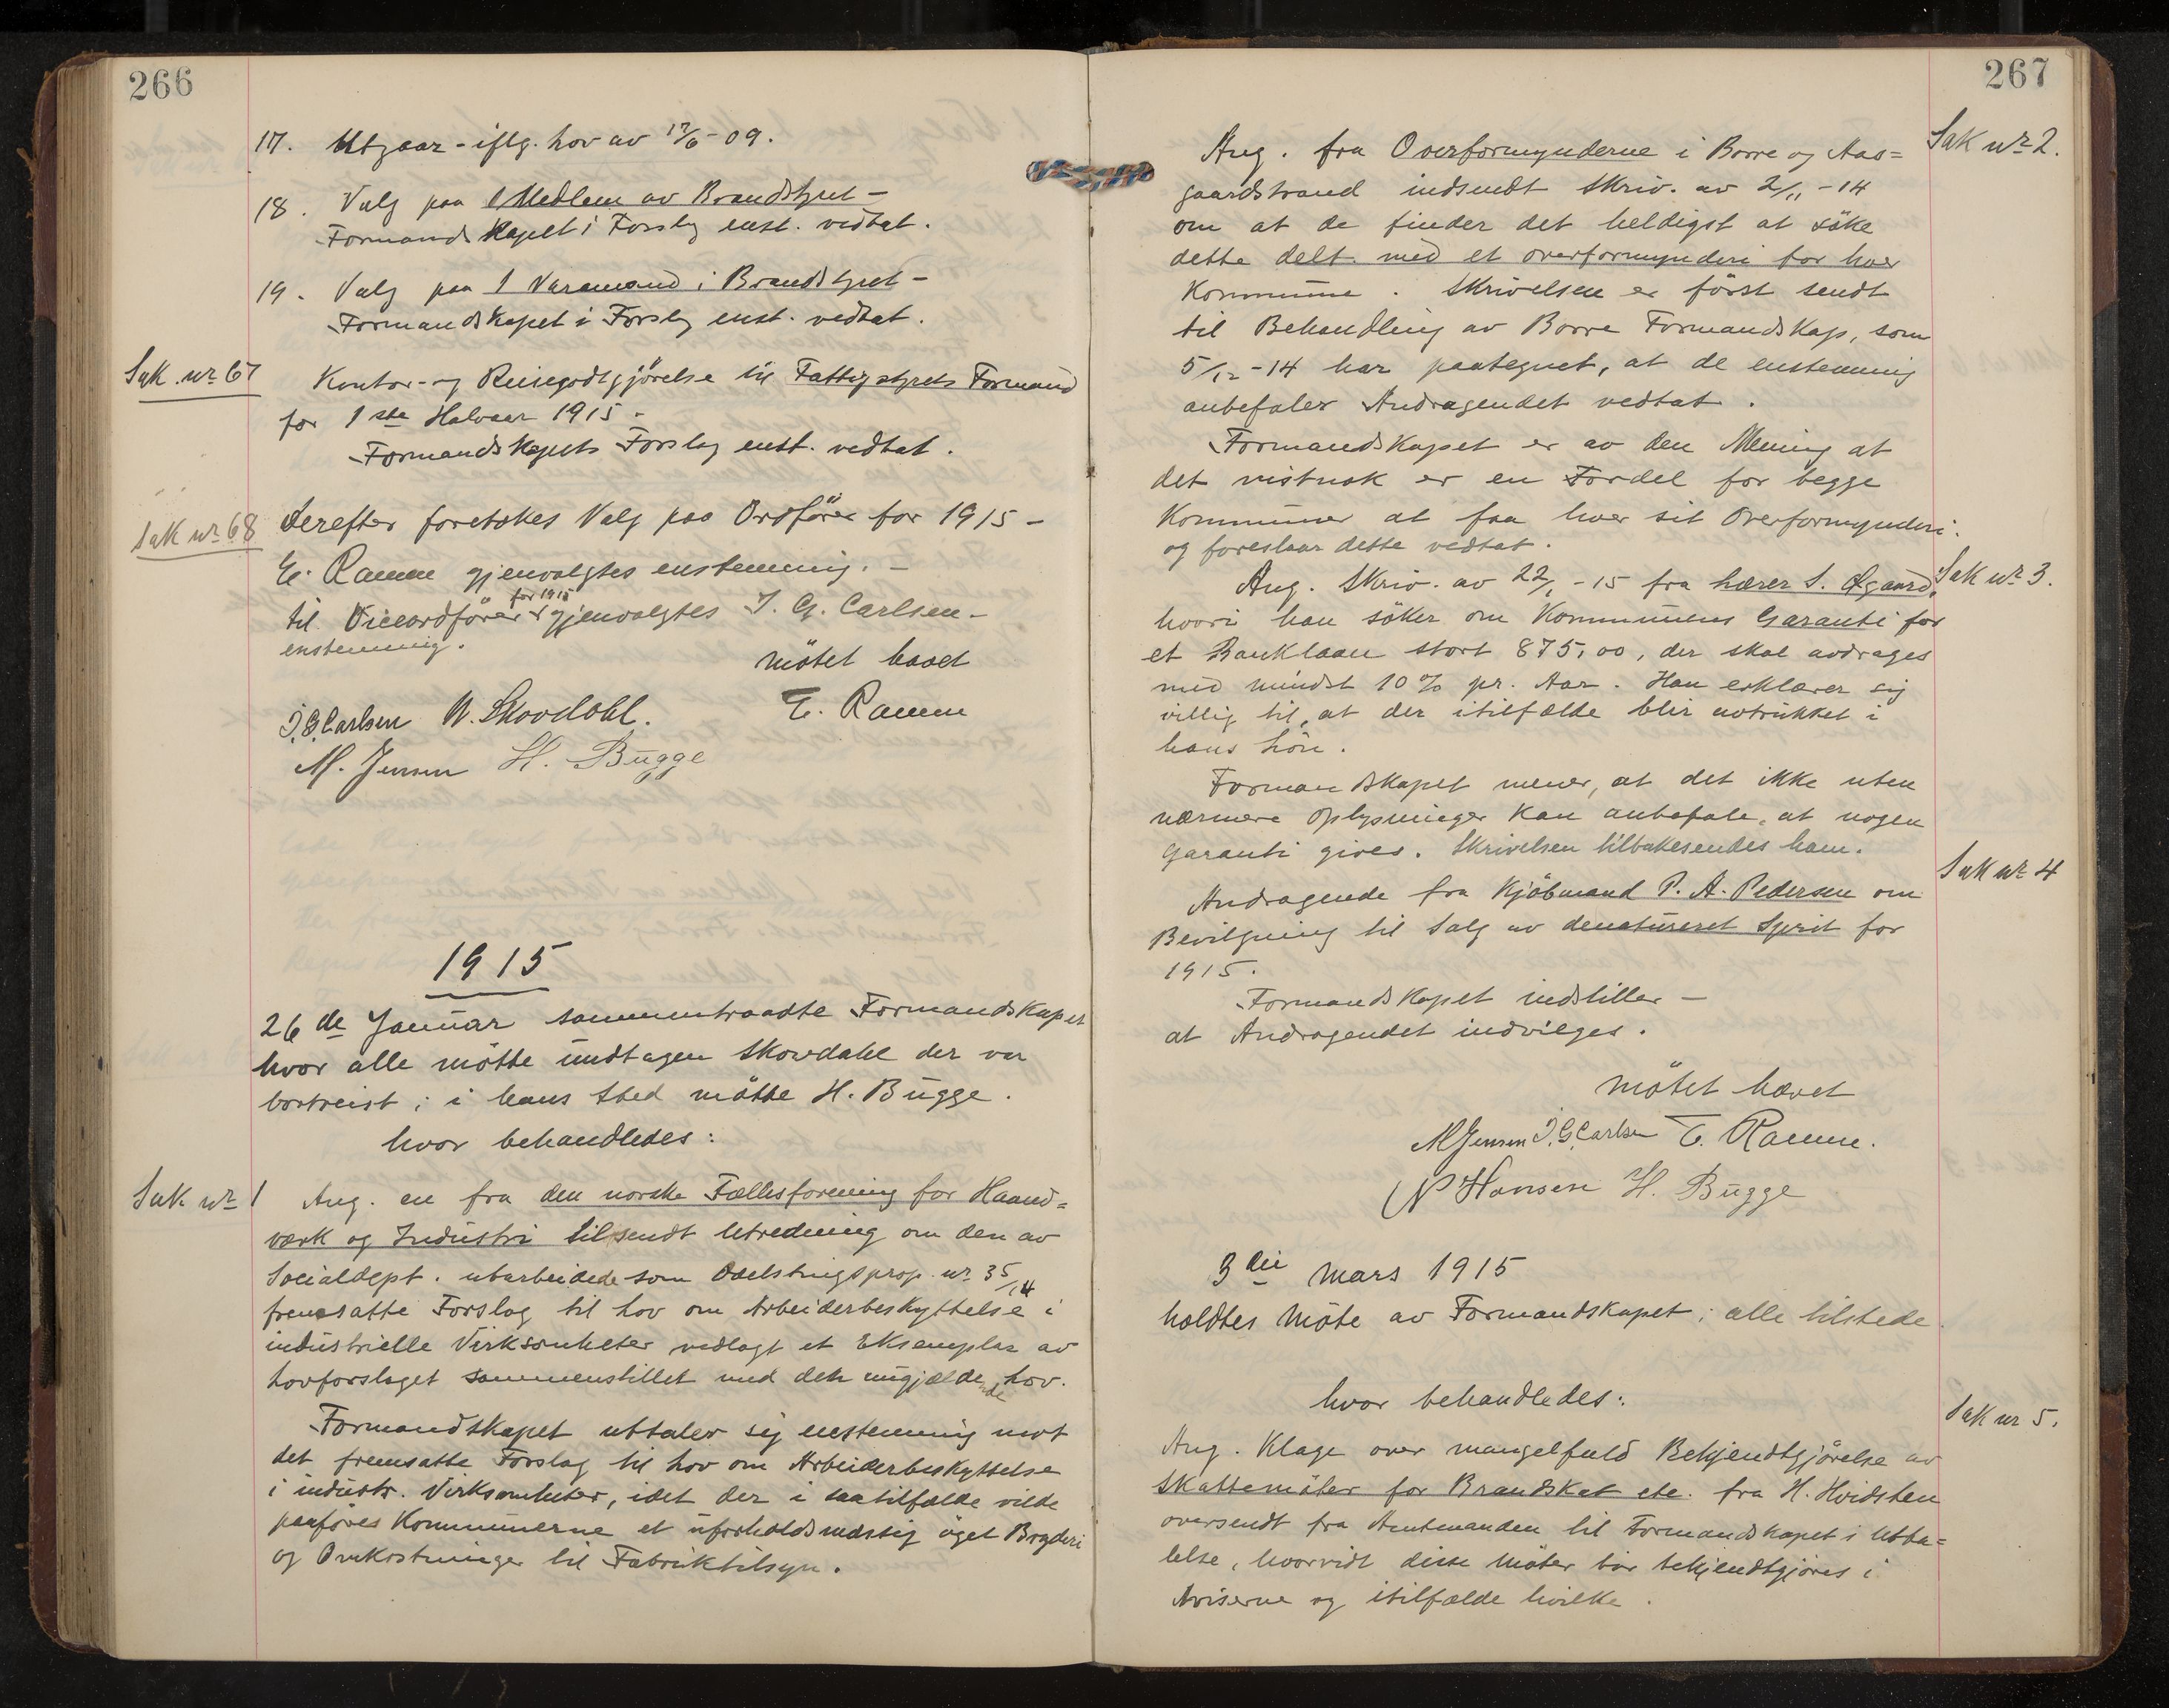 266
17. Utgaar - iflg. Lov av 17/6-09.
18. Valg paa 1 Medlem av Brandstyret -
Formandskapet i Forslag enst. vedtat.
19. Valg paa 1 Varamand i Brandstyret -
Formandskapet i Forslag enst. vedtat.
Sak nr 67
Kontor- og Reisegodtgjörelse til Fattigstyrets Formand
for 1ste Halvaar 1915 -
Formandskapets Forslag enst. vedtat.
Sak nr 68
Derefter foretokes Valg paa Ordförer for 1915 -
E. Ramm gjenvalgtes enstemmig. -
for 1915
til Viceordförer gjenvalgtes J. G. Carlsen -
enstemmig.
Mötet hævet
J. G. Carlsen N. Skovdahl. E. Ramm
M. Jensen H. Bugge
1915
26de Januar sammentraadte Formandskapet
hvor alle mötte undtagen Skovdahl der var
bortreist; i hans Sted mötte H. Bugge.
hvor behandledes:
Sak nr 1
Ang. en fra den norske Fællesforening for Haand=
værk og Industri tilsendt Utredning om den av
Socialdept. utarbeidede som Odelstingsprop. nr 35/14
fremsatte Forslag til Lov om Arbeiderbeskyttelse i
industrielle Virksomheter vedlagt et Eksemplar av
Lovforslaget sammenstillet med den nugjældende Lov.
Formandskapet uttaler sig enstemmig mot
det fremsatte Forslag til Lov om Arbeiderbeskyttelse
i industr. Virksomheter, idet der i saatilfælde vilde
paaföres Kommunerne et uforholdsmæssig öget Bryderi
og Omkostninger til Fabriktilsyn.
267
Sak nr 2.
Ang. fra Overformynderne i Borre og Aas=
gaardstrand indsendt Skriv. av 2/11 -14
om at de finder det heldigst at söke
dette delt med et overformynderi for hver
Kommune. Skrivelsen er först sendt
til Behandling av Borre Formandskap, som
5/12 -14 har paategnet, at de enstemmig
anbefaler Andragendet vedtat.
Formandskapet er av den Mening at
det vistnok er en Fordel for begge
Kommuner at faa hver sit Overformynderi.
og foreslaar dette vedtat.
Sak nr 3.
Ang. Skriv. av 22/1 -15 fra Lærer S. Øgaard,
hvori han söker om Kommunens Garanti for
et Banklaan stort 875,00, der skal avdrages
med mindst 10% pr. Aar. Han erklærer sig
villig til, at der itilfælde blir avtrukket i
hans Lön.
Formandskapet mener, at det ikke uten
nærmere Oplysninger kan anbefale, at nogen
Garanti gives. Skrivelsen tilbakesendes ham.
Sak nr 4
Andragende fra Kjöbmand P. A. Pedersen om
Bevilgning til Salg av denatureret Sprit for
1915.
Formandskapet indstiller -
at Andragendet indvilges.
Mötet hævet
M Jensen J. G. Carlsen E. Ramm.
N P Hansen H. Bugge
3die Mars 1915
holdtes Möte av Formandskapet; alle tilstede.
hvor behandledes:
Sak nr 5.
Ang. Klage over mangelfuld Bekjendtgjörelse av
Skattemöter for Brandskat etc. fra H. Hvidsten
oversendt fra Amtmanden til Formandskapet i Utta=
lelse, hvorvidt disse Möter bör bekjendtgjöres i
Aviserne og itilfælde hvilke.